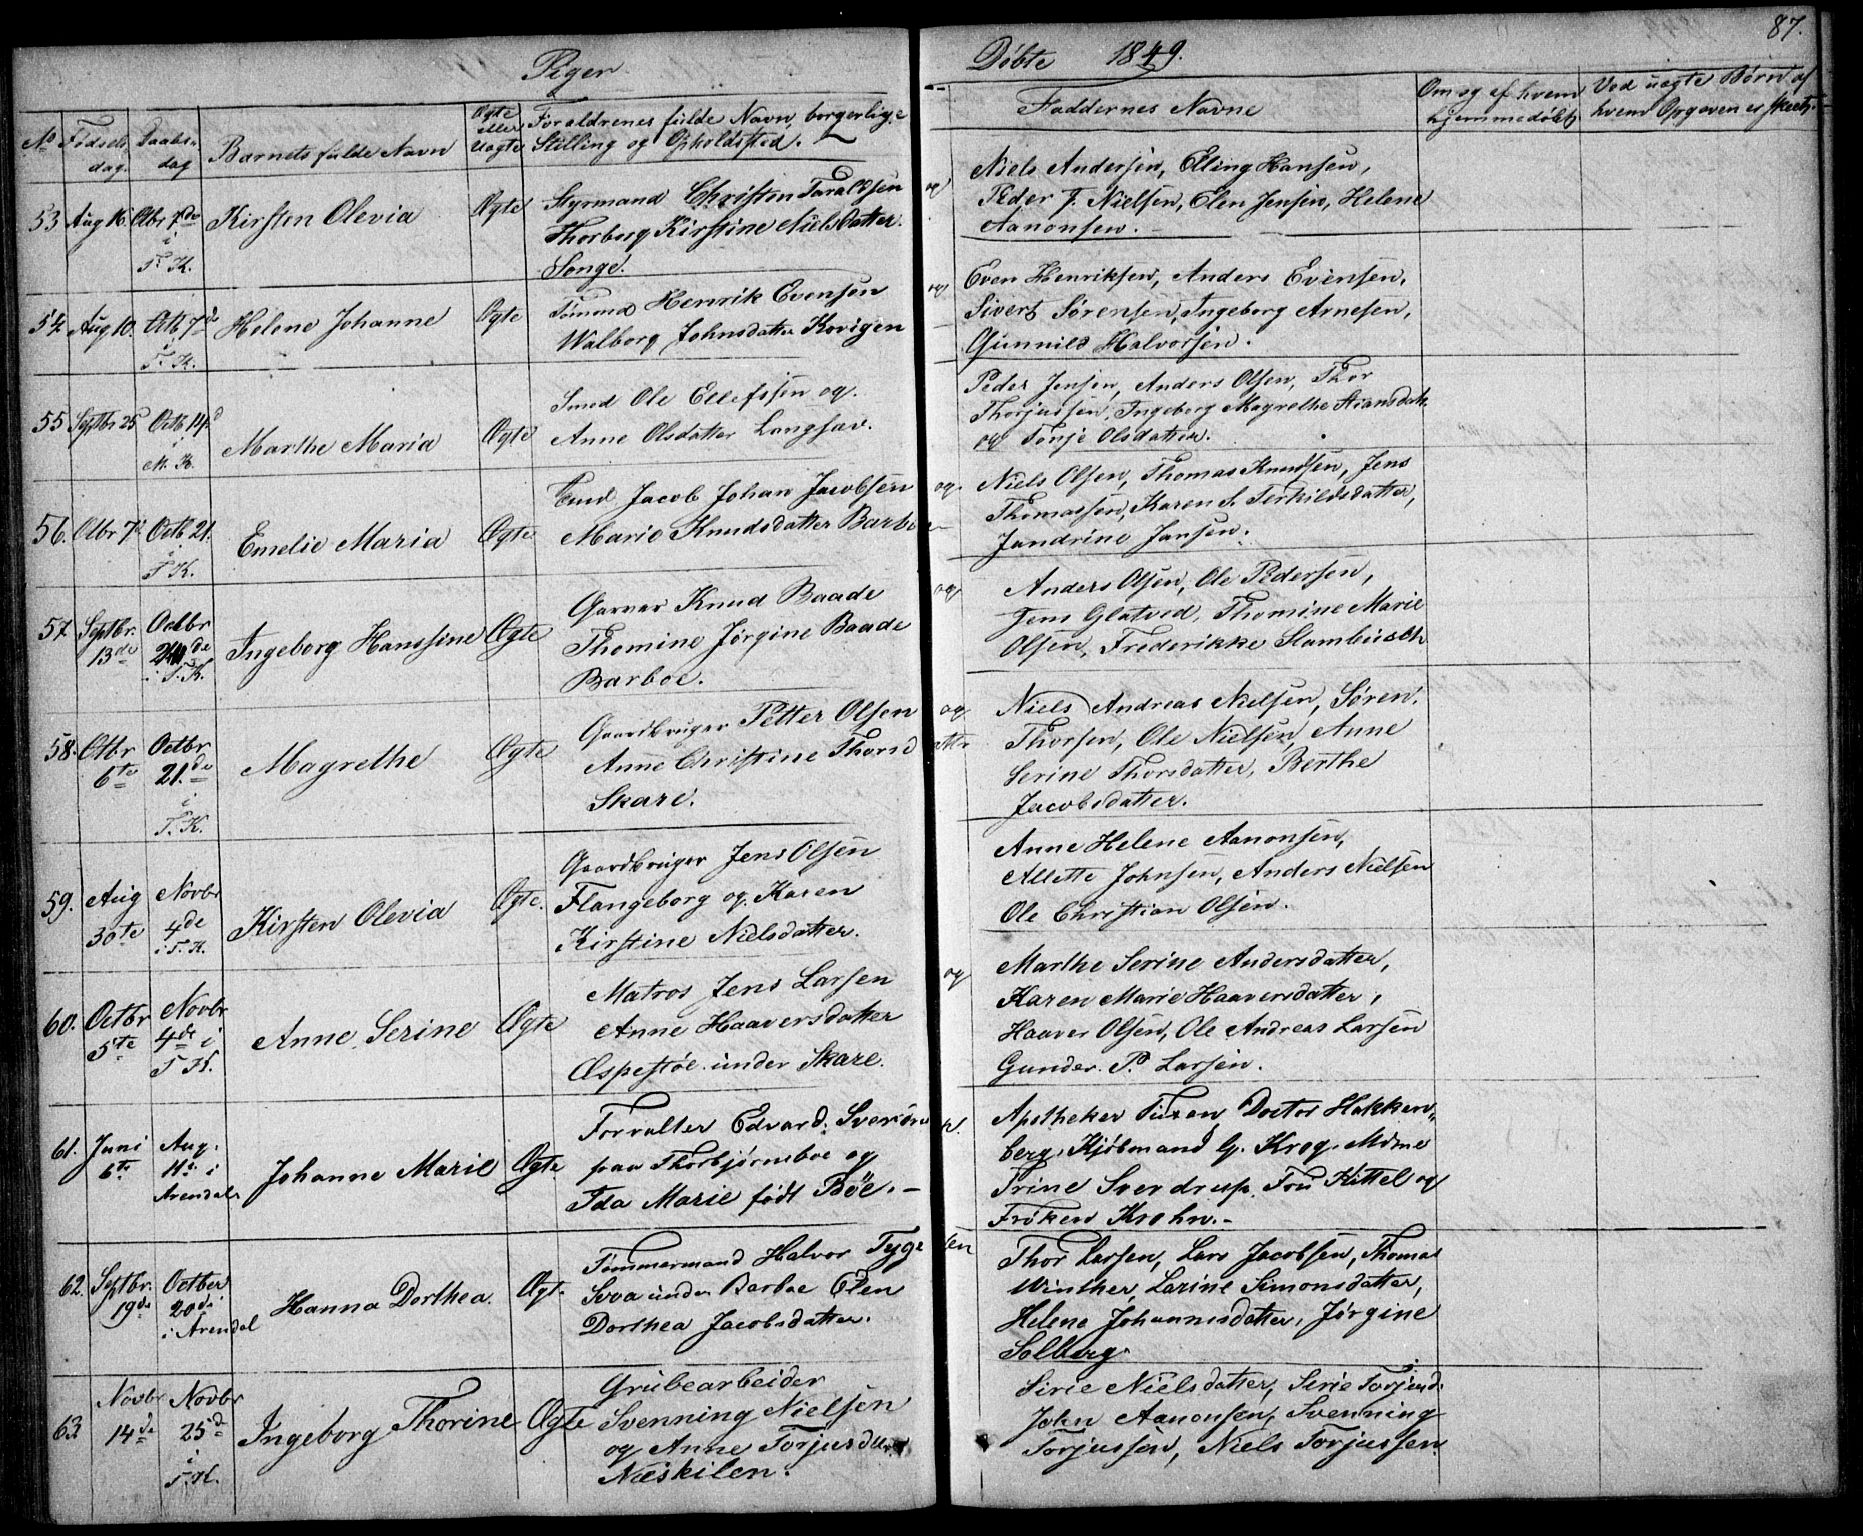 Piger. Døbte 1849. 87.
No Fødselsdag. Daabsdag Barnets fulde Navn Ægte eller Uægte Forældrenes fulde Navn, borgerlige Stilling og Opholdssted. Faddernes Navne Om og af hvem hjemmedøbt Ved uægte Børn af hvem Opgaven er skeet.
53 Aug 16. Otbr 7de i T. K. Kirsten Olevia Ægte
Styrmand Christen Taraldsen og
Thorborg Kirstine Nielsdatter.
Songe.
Niels Andersen, Elling Hansen,
Peder J. Nielsen, Elen Jensen, Helene
Aanonsen.
54 Aug 10. Otb 7de i T. K. Helene Johanne Ægte
Tømmd Henrik Evensen og
Walborg Johnsdatter Kovigen
Even Henriksen, Anders Evensen,
Sivert Sørensen, Ingeborg Arnesen,
Gunnild Halvorsen.
55 Septbr 25 Octb 14d i M. K. Marthe Maria Ægte
Smed Ole Ellefssen og
Anne Olsdatter Langsæv.
Peder Jensen, Anders Olsen, Thor
Thorjussen, Ingeborg Magrethe
og Tonje Olsdatter.
56. Otbr 7d Octb 21. i T. K. Emelie Maria Ægte
Jacob Johan Jacobsen og
Marie Knudsdatter Barboe
Niels Olsen, Thomas Knudsen, Jens
Thomassen, Karen S. Terkildsdatter,
Jandrine Jansen.
57 Septbr. 13de Octbr de i T. K. Ingeborg Hanssine Ægte
Garver Knud Baade og
Thomine Jørgine Baade
Barboe.
Anders Olsen, Ole Pedersen,
Jens Glatved, Thomine Marie
Olsen, Frederikke Stambusch
58. Otbr 6te Octbr 21.de i T. K. Magrethe Ægte
Gaardbruger Petter Olsen og
Anne Christine Thorsdatter
Skare.
Niels Andreas Nielsen, Søren
Thorsen, Ole Nielsen Anne
Serine Thorsdatter, Berthe
Jacobsdatter.
59. Aug 30te Novbr 4de i T. K. Kirsten Olevia Ægte.
Gaardbruger Jens Olsen
Flangeborg og Karen
Kirstine Nielsdatter.
Anne Helene Aanonsen,
Allette Johnsen, Anders Nielsen
Ole Christian Olsen.
60. Octbr 5te Novbr 4de i T. K. Anne Serine Ægte
Matros Jens Larsen og
Anne Haaversdatter
Æspestøe under Skare.
Marthe Serine Andersdatter,
Karen Marie Haaversdatter,
Haaver Olsen, Ole Andreas Larsen
Gunder P. Larsen.
61. Juni 6te Aug. 11te i Arendal Johanne Marie Ægte
Forvalter Edvard
paa Thorbjørnsboe og
Ida Marie født Bøe. -
Apotheker Tuxen, Doctor Hakken-
berg, Kjøbmand G. Krog, Mdme
Trine Sverdrup, Fru Kittel og
Frøken Krohn. -
62. Septbr. 19de Octber 20de i Arendal Hanna Dorthea. Ægt.
Tømmermand Halvor Tygesen
Svva under Barboe Elen
Dorthea Jacobsdatter.
Thor Larsen, Lars Jacobsen, Thomas
Winther, Larine Simonsdatter,
Helene Johannesdatter, Jørgine
Solberg.
63 Novbr 14de Novbr 25de i T. K. Ingeborg Thorine Ægte
Grubearbeider
Svenning Nielsen
og Anne Torjusdtr
Næskilen.
Sirie Nielsdatter, Serie Torjusd.
John Aanonsen, Svenning
Torjussen, Niels Torjussen